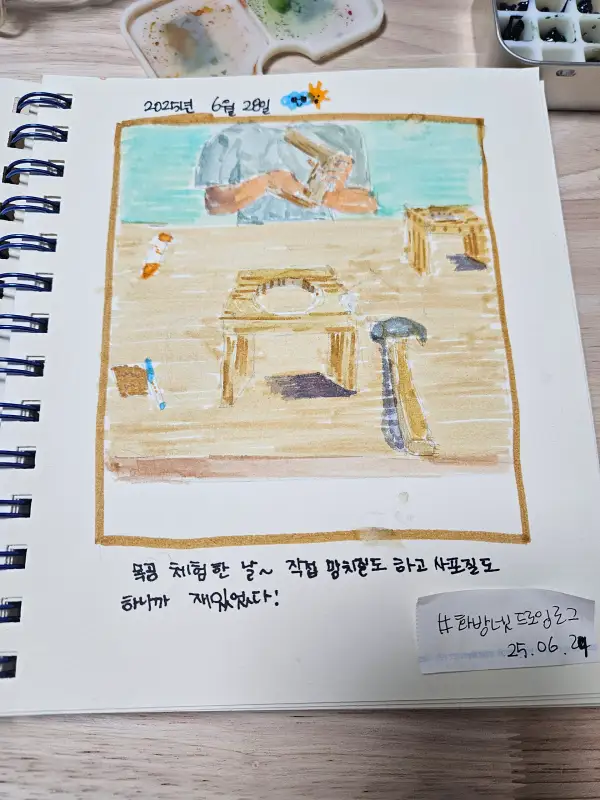 2025년 6월 28일
목공 체험한 날~ 직접 망치질도 하고 사포질도
하니까 재밌었다!
#화방넷드로잉로그
25.06.24